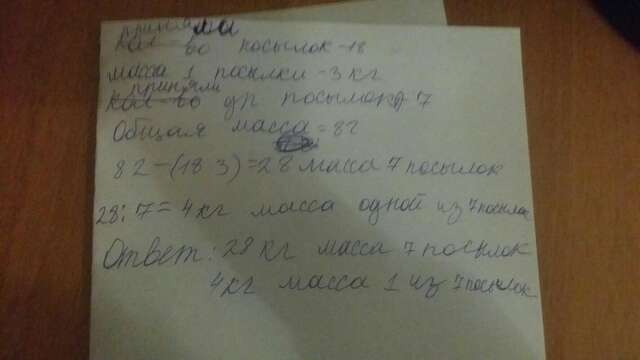 приняли
Кол-во посылок - 18
масса 1 посылки - 3 кг
приняли
Кол-во др посылок 7
Общая масса = 82
82 - (18 3) = 28 масса 7 посылок
28 : 7 = 4 кг масса одной из 7 посылок
Ответ: 28 кг масса 7 посылок
4 кг масса 1 из 7 посылок